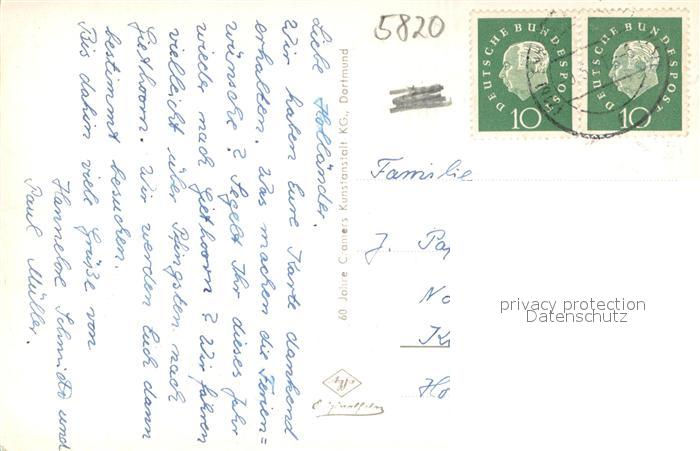 5820
DEUTSCHE BUNDESPOST
10
DEUTSCHE BUNDESPOST
10
Liebe Holländer.
Wir haben Eure Karte dankend
erhalten. Was machen die Ferien=
wünsche? Segelt Ihr dieses Jahr
wieder nach Giethoorn? Wir fahren
vielleicht über Pfingsten nach
Giethoorn. Wir werden Euch dann
bestimmt besuchen.
Bis dahin viele Grüße von
Hannelore Schmidt und
Paul Müller.
60 Jahre Cramers Kunstanstalt KG., Dortmund
Familie
J. Pa
No
K
Ho
privacy protection
Datenschutz